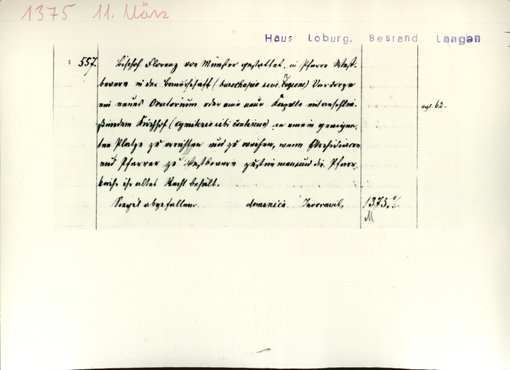 1375 11. März
Haus Loburg, Bestand Langen
557. Bischof Florenz von Münster gestattet, in Pfarre West-
bevern in der Bauerschaft (burschapio sive legione) Vardorpe
ein neues Oratorium oder eine neue Kapelle mit anschlie-
ßendem Kirchhof (cymiterio sibi contiguo) an einem geeigne-
ten Platze zu errichten und zu weihen, wenn Archidiacon
und Pfarrer zu Westbevern zustimmen und die Pfarr-
kirche ihr altes Recht behält.
vgl. 62.
Siegel abgefallen. dominica Invocavit. 1375.
M